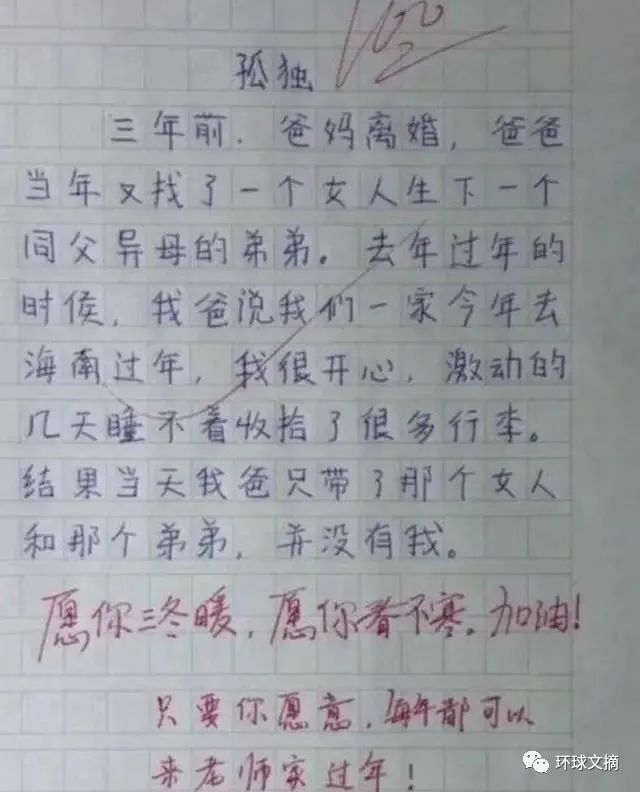 100
孤独
三年前.爸妈离婚,爸爸
当年又找了一个女人生下一个
同父异母的弟弟。去年过年的
时侯,我爸说我们一家今年去
海南过年,我很开心,激动的
几天睡不着收拾了很多行李。
结果当天我爸只带了那个女人
和那个弟弟,并没有我。
愿你三冬暖,愿你春不寒。加油!
只要你愿意,每年都可以
来老师家过年!
环球文摘